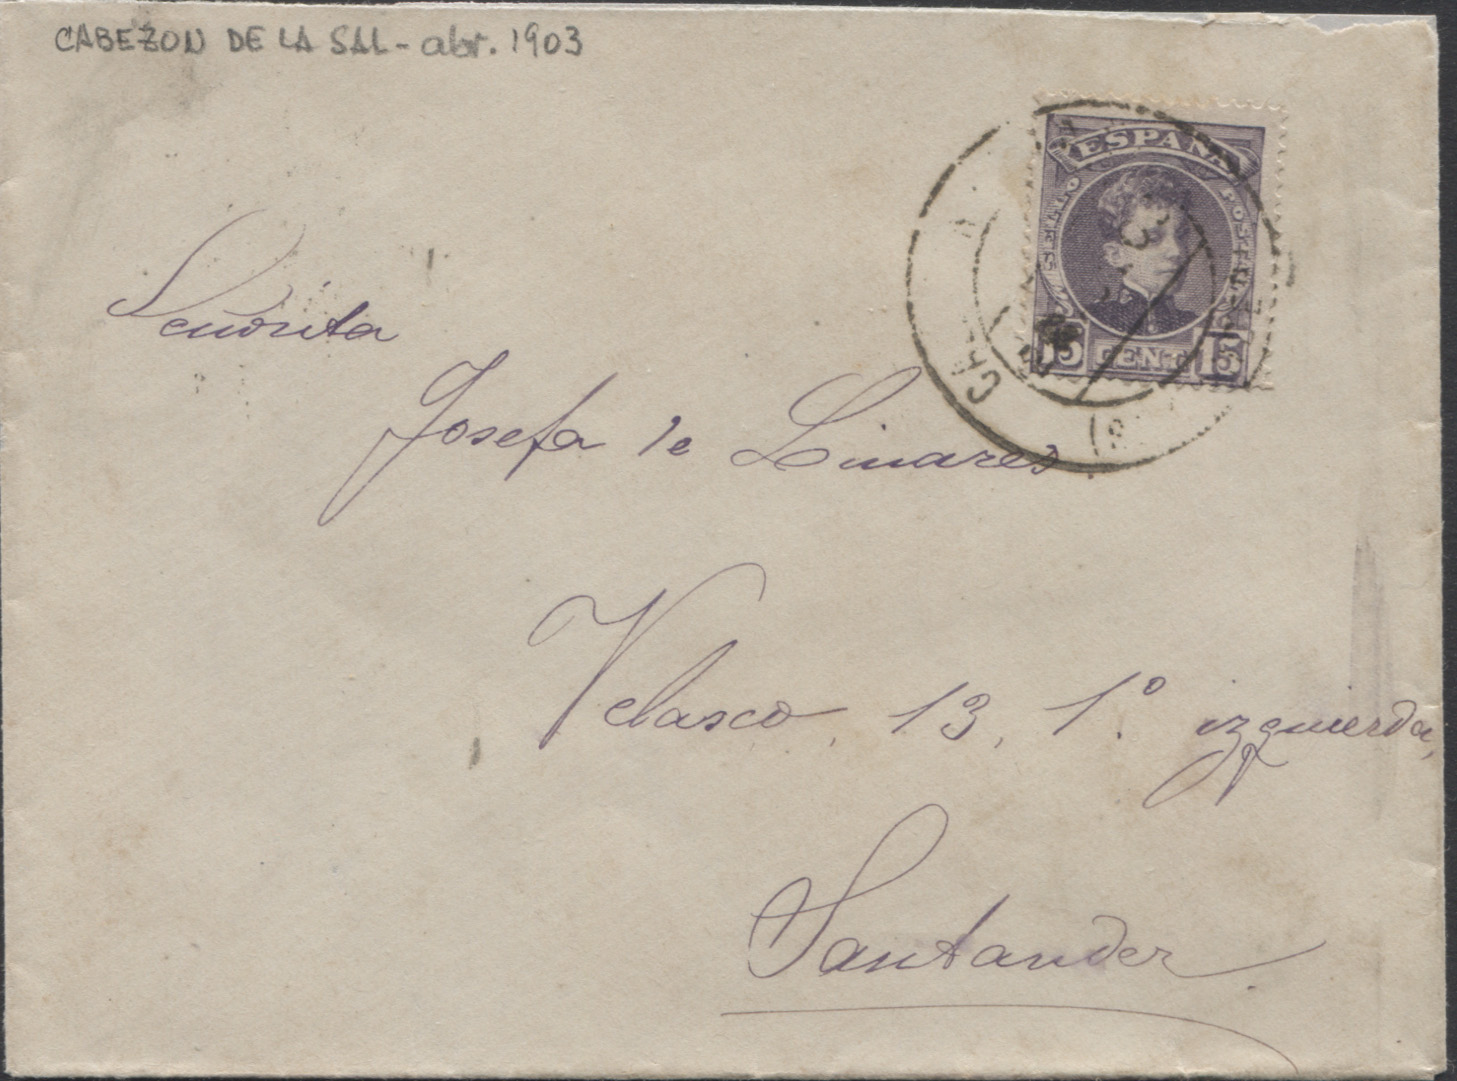 CABEZON DE LA SAL - abr. 1903
ESPAÑA
SELLO POSTAL
15 CENT 15
Señorita
Josefa de Linares
Velasco, 13, 1º izquierda,
Santander